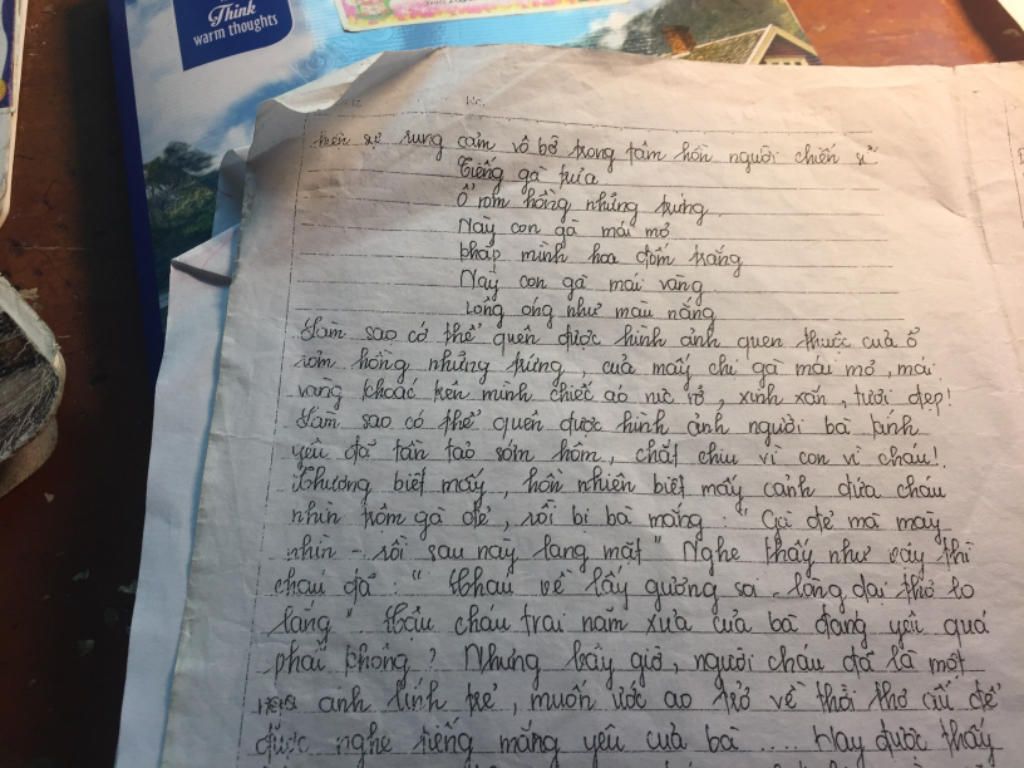 Think
warm thoughts
trên sự rung cảm vô bờ trong tâm hồn người chiến sĩ
Tiếng gà trưa
Ổ rơm hồng những trứng
Này con gà mái mơ
Khắp mình hoa đốm trắng
Này con gà mái vàng
Lông óng như màu nắng
Làm sao có thể quên được hình ảnh quen thuộc của ổ
rơm hồng những trứng, của mấy chị gà mái mơ, mái
vàng khoác trên mình chiếc áo rực rỡ, xinh xắn, tươi đẹp!
Làm sao có thể quên được hình ảnh người bà kính
yêu đã tần tảo sớm hôm, chắt chiu vì con vì cháu!
Thương biết mấy, hồn nhiên biết mấy cảnh đứa cháu
nhìn trộm gà đẻ, rồi bị bà mắng: "Gà đẻ mà mày
nhìn - rồi sau này lang mặt" Nghe thấy như vậy thì
cháu đã: "Cháu về lấy gương soi - lòng dại thơ lo
lắng" Cậu cháu trai năm xưa của bà đáng yêu quá
phải không? Nhưng bây giờ, người cháu đã là một
anh lính trẻ, muốn ước ao trở về thời thơ ấu để
được nghe tiếng mắng yêu của bà .... Hay được thấy